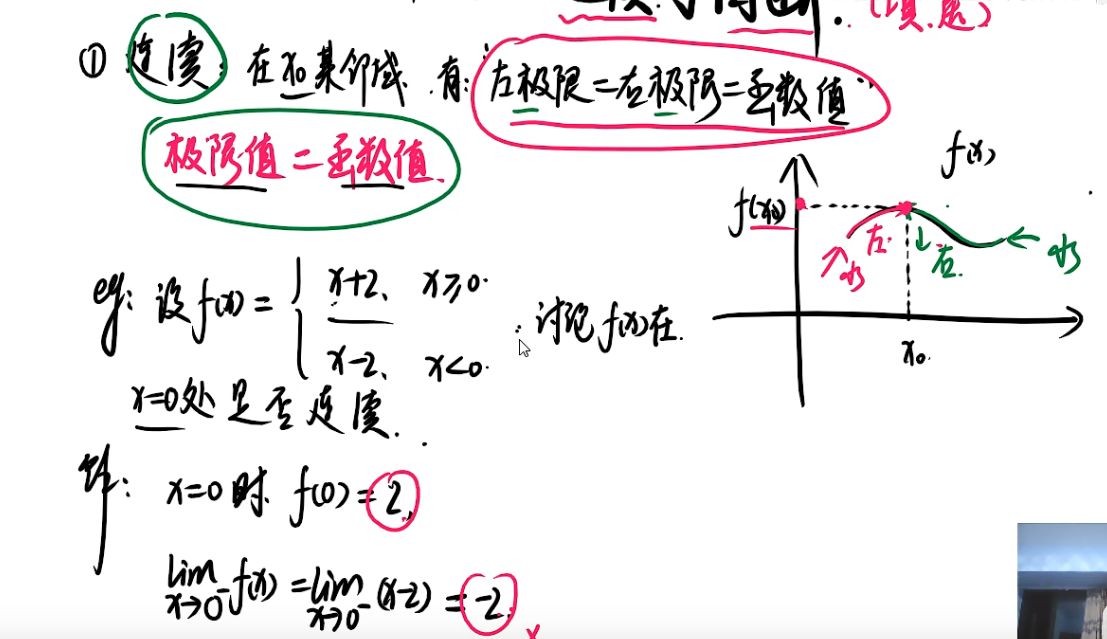 (填.选)
① 连续: 在x₀某邻域. 有: 左极限=右极限=函数值
极限值=函数值.
f(x)
f(x₀)
左. 右.
x₀.
eg: 设f(x)= { x+2、 x≥0. x-2、 x<0. 讨论f(x)在.
x=0处是否连续.
解: x=0时. f(0)=2,
lim x→0⁻ f(x) = lim x→0⁻ (x-2) = -2.